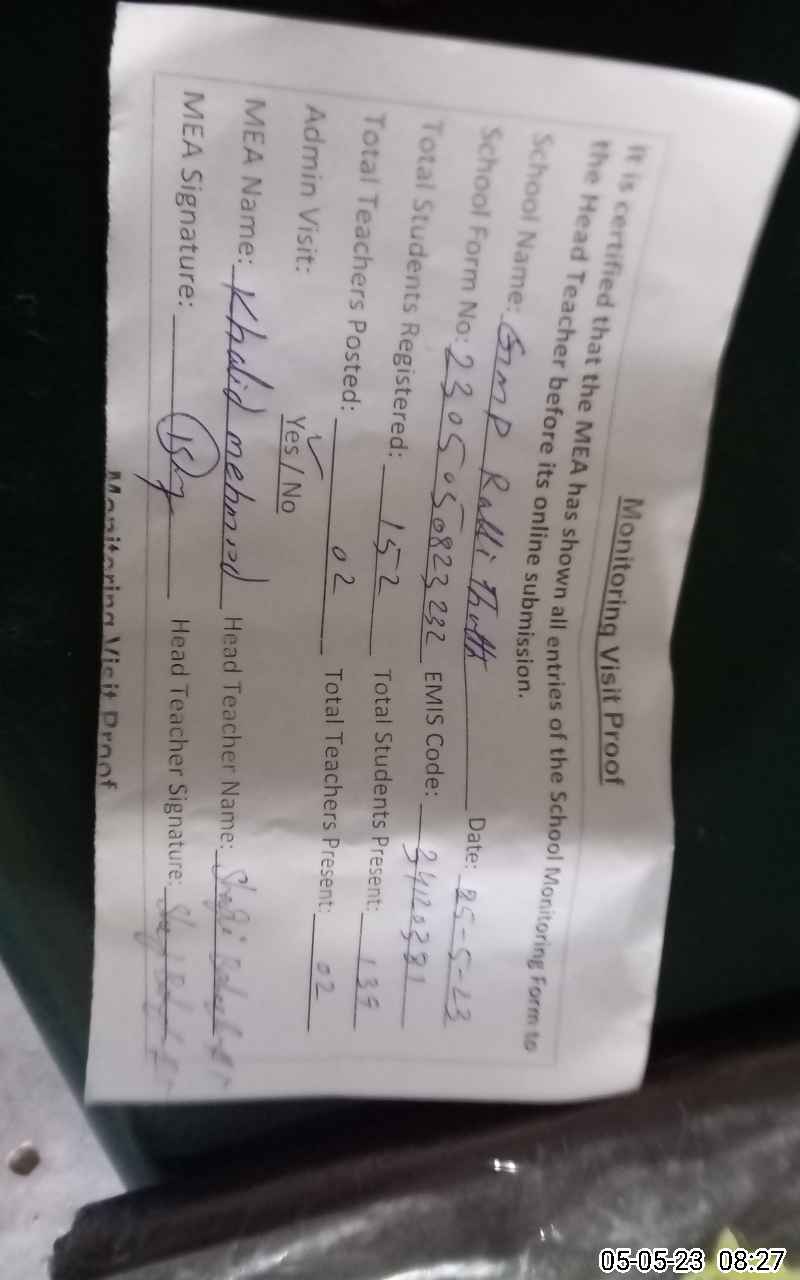 Monitoring Visit Proof
It is certified that the MEA has shown all entries of the School Monitoring Form to
the Head Teacher before its online submission.
School Name: GMP Date: 25-5-23
School Form No: 2305050823232 EMIS Code:
Total Students Registered: 152 Total Students Present: 139
Total Teachers Posted: 02 Total Teachers Present: 02
Admin Visit: Yes / No
MEA Name: Khalid mehmood Head Teacher Name:
MEA Signature: Head Teacher Signature:
Monitoring Visit Proof
05-05-23 08:27